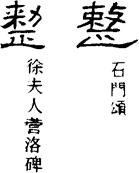 整
石門頌
整
徐夫人菅洛碑